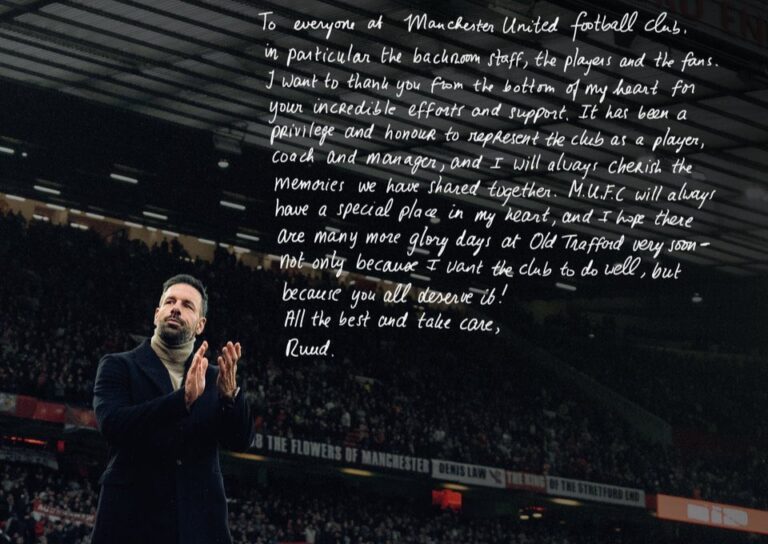 To everyone at Manchester United football club.
in particular the backroom staff, the players and the fans.
I want to thank you from the bottom of my heart for
your incredible efforts and support. It has been a
privilege and honour to represent the club as a player,
coach and manager, and I will always cherish the
memories we have shared together. M.U.F.C will always
have a special place in my heart, and I hope there
are many more glory days at Old Trafford very soon-
not only because I want the club to do well, but
because you all deserve it!
All the best and take care,
Ruud.
THE FLOWERS OF MANCHESTER
DENIS LAW
THE KING
OF THE STRETFORD END